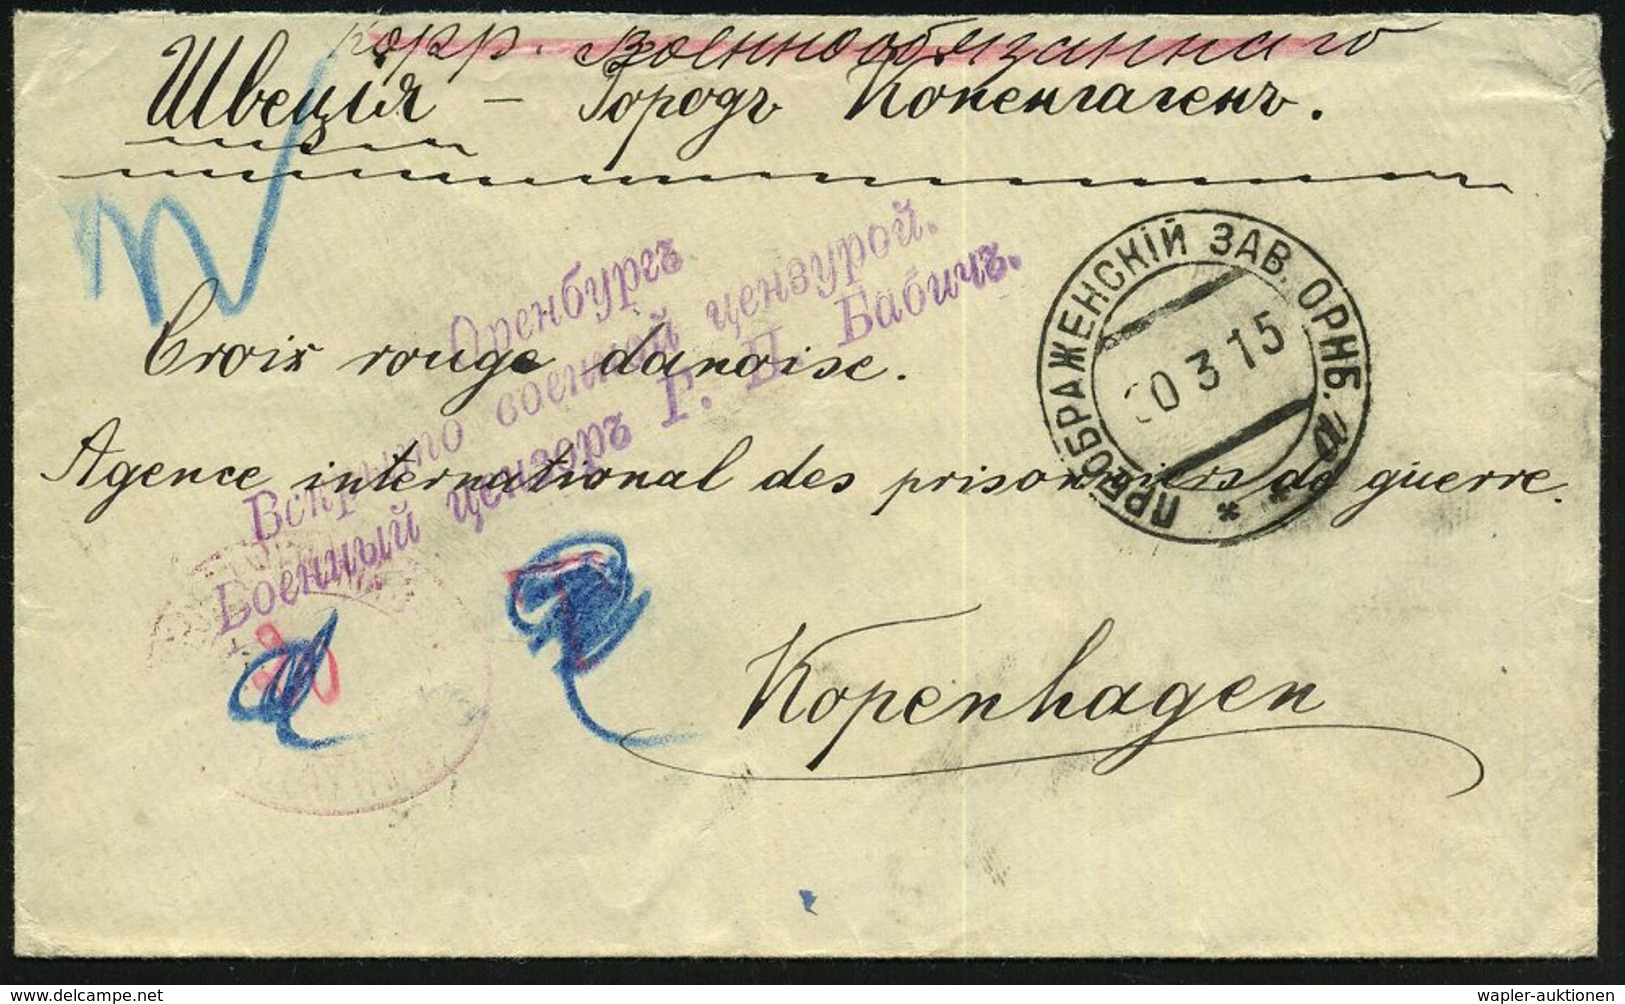 Корр. Военнообязаннаго
Швеція – Городъ Копенгагенъ.
Оренбургъ
Вскрыто военной цензурой.
Военный цензоръ Г. П. Бабичъ.
ПРЕОБРАЖЕНСКІЙ ЗАВ. ОРНБ.
0 3 15
Croix rouge danoise.
Agence international des prisonniers de guerre.
Kopenhagen
wapler-auktionen